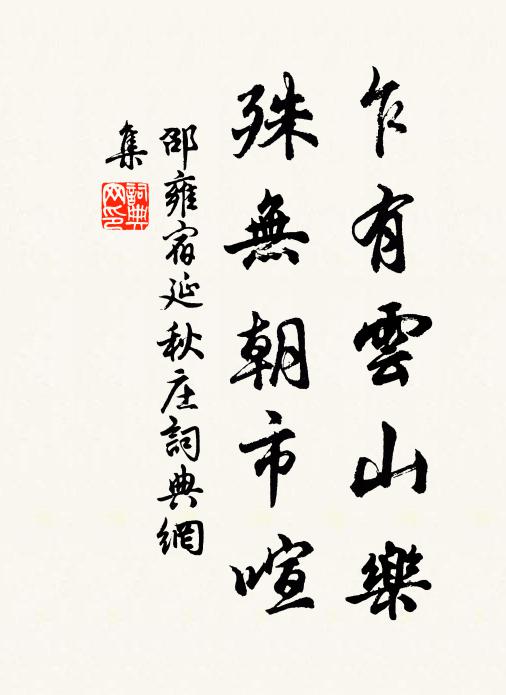 乍有雲山樂
殊無朝市喧
邵雍宿延秋庄詞典網
集
詞典
网印